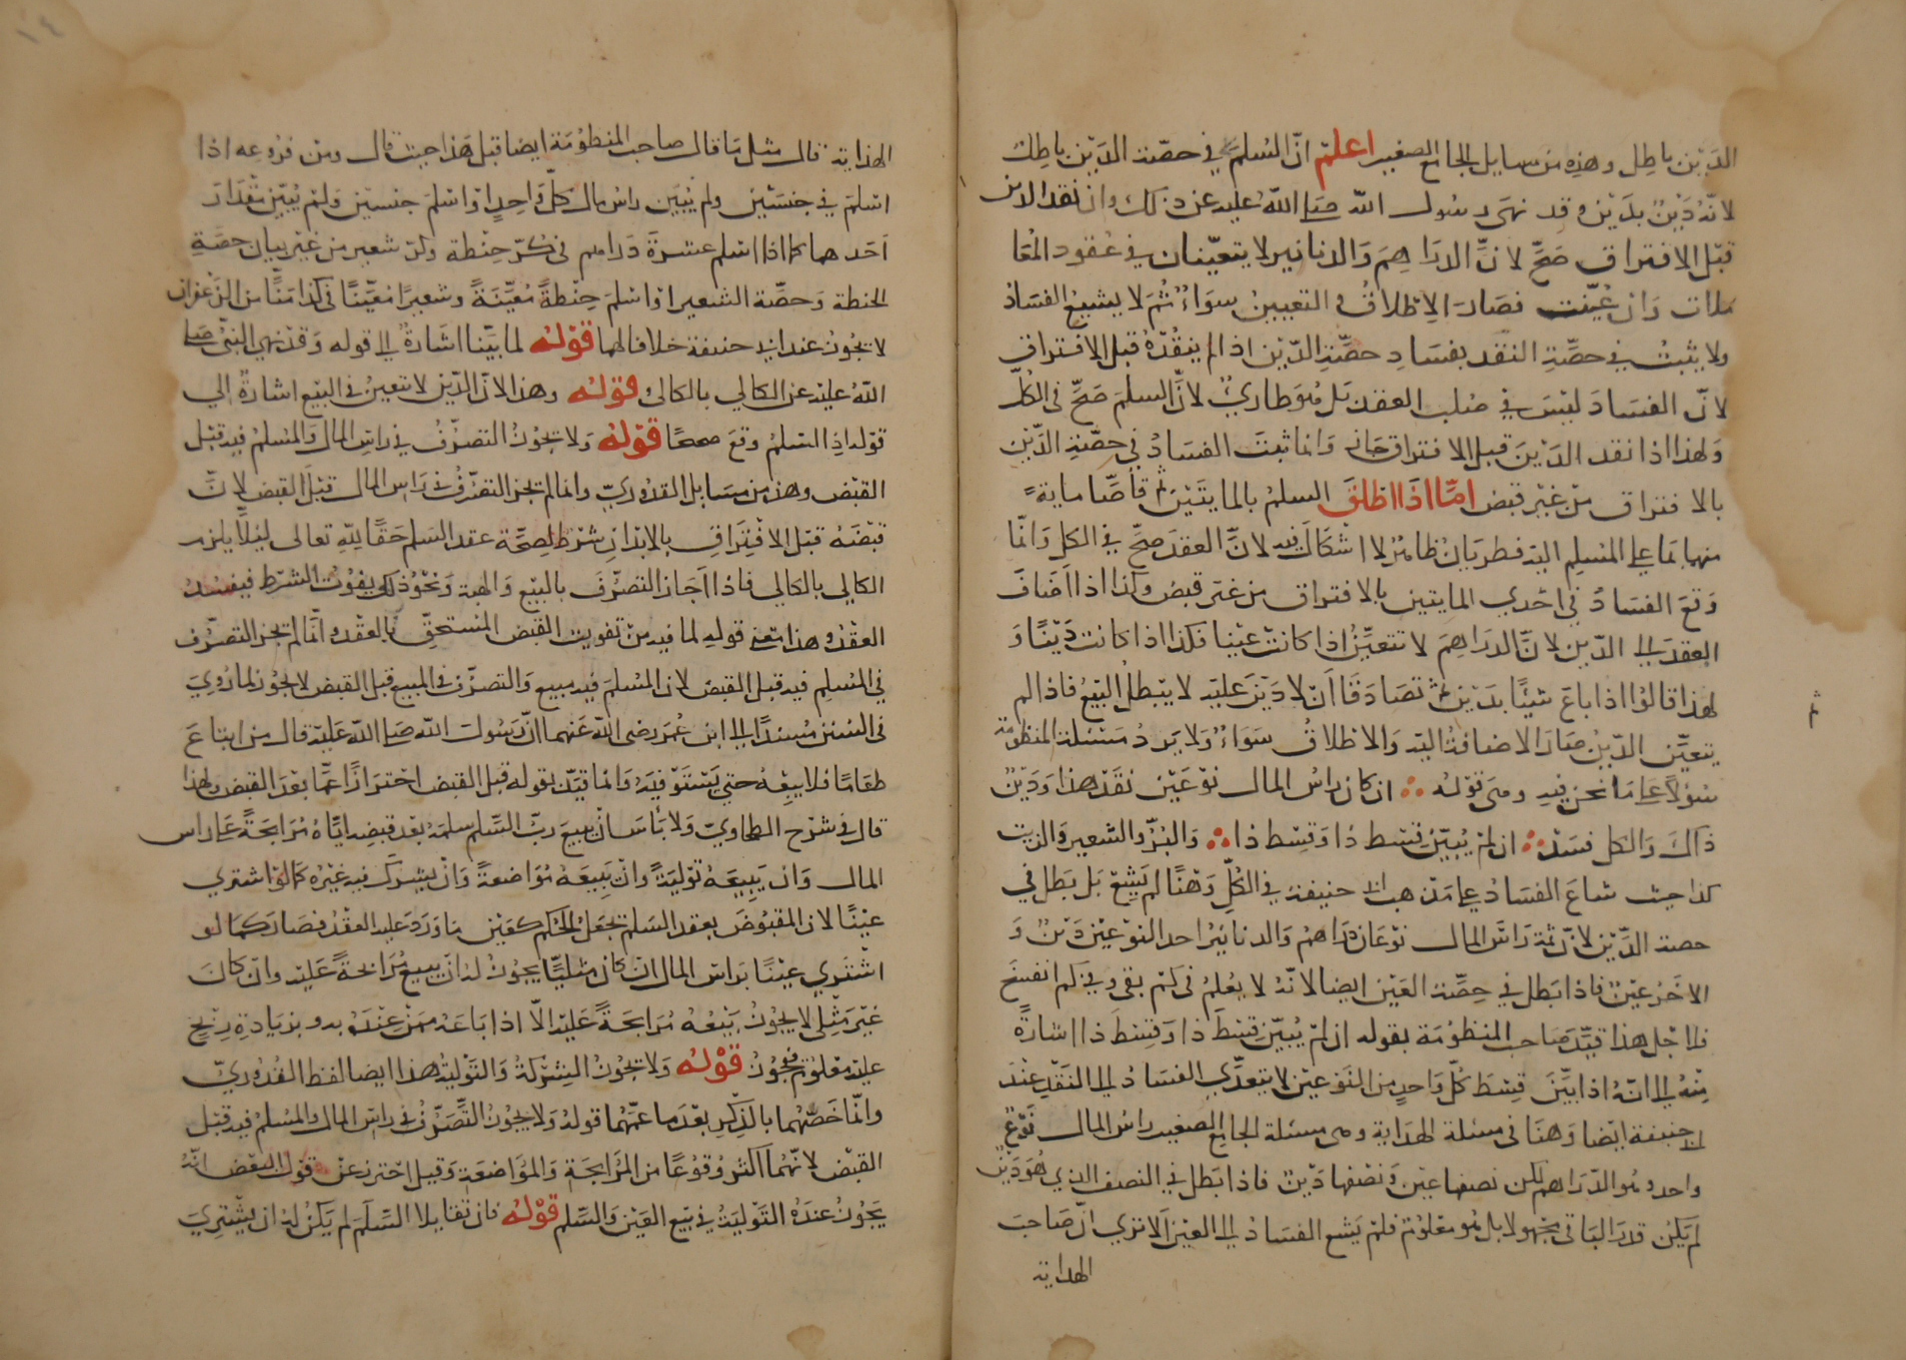 الدَين باطل وهذه من مسايل الجامع الصغير اعلم انّ السلم في حصّة الدَين باطل
لانّه دَين بدَين وقد نهى رسول الله صلى الله عليه عن ذلك وان نقد الدين
قبل الافتراق صَحّ لانّ الدراهم والدنانير لا يتعيّنان في عقود المعا
ملات وان عُيّنت فصار الاطلاق والتعيين سواء ثم لا يشيع الفساد
ولا يثبت في حصّة النقد بفساد حصّة الدّين اذا لم ينقده قبل الافتراق
لانّ الفساد ليس في صلب العقد بل هو طاريٌ لانّ السلم صحّ في الكل
ولهذا اذا نقد الدَين قبل الافتراق جاز وانما ثبت الفساد في حصّة الدّين
بالافتراق من غير قبض امّا اذا اطلق السلم بالمايتين ثم قاصّا ماية
منها بما على المسلم اليه فطريان ظاهر لا اشكال فيه لانّ العقد صحّ في الكل وانّما
وقع الفساد في احدي المايتين بالافتراق من غير قبض وكذا اذا اضاف
العقد الى الدّين لانّ الدراهم لا تتعيّن اذا كانت عينا فكذا اذا كانت دَينًا و
لهذا قالوا اذا باع شيئًا بدَين ثم تصادقا اَن لا دَين عليه لا يبطل البيع فاذا لم
يتعيّن الدّين صار الاضافة اليه والاطلاق سواء ولا يرد مسئلة المنظومة
سؤلا على ما نحن فيه وهي قوله ان كان راس المال نوعين نقد هذا ودَين
ذاك والكل فسد ان لم يُبيّن قسط ذا وقسط ذا والبُرّ والشعير والزيت
كذا حيث شاع الفساد على مذهب ابي حنيفة في الكلّ وهنا لم يشع بل بطل في
حصة الدّين لانّ ثمة راس المال نوعان دراهم والدنانير احد النوعين دَين و
الاخر عين فاذا بطل في حصّة العين ايضا لانه لا يعلم في كم بقى وفي كم انفسخ
فلاجل هذا قيّد صاحب المنظومة بقوله ان لم يُبيّن قسط ذا وقسط ذا اشارةً
منه الى انّه اذا بيّن قسط كلّ واحدٍ من النوعين لا يتعدّي الفساد الى النقد عند
ابي حنيفة ايضا وهنا في مسئلة الهداية وهي مسئلة الجامع الصغير راس المال نوع
واحد وهو الدّراهم لكن نصفها عين ونصفها دَين فاذا بطل في النصف الذي هو دَين
لم يكن قدر الباقي مجهولا بل هو معلوم فلم يشع الفساد الى العين الا تري انّ صاحب
الهداية
الهداية قال مثل ما قال صاحب المنظومة ايضا قبل هذا حيث قال ومن فروعه اذا
اسلم في جنسين ولم يُبيّن راس مال كلّ واحدٍ او اسلم جنسين ولم يُبيّن مقدار
اَحدهما كما اذا اسلم عشرة دراهم في كرّ حنطة وكرّ شعير من غير بيان حصّة
الحنطة وحصّة الشعير او اسلم حنطةً معيّنةً وشعيرًا معيّنًا في كذا منًّا من الزعفران
لا يجوز عند ابي حنيفة خلافا لهما قوله لما بيّنا اشارةٌ الى قوله وقد نهى النبي صلى
الله عليه عن الكالي بالكالي قوله وهذا لانّ الدّين لا يتعين في البيع اشارة الي
قوله اذ السّلم وقع صحيحًا قوله ولا يجوز التصرّف في راس المال والمسلم فيه قبل
القبض وهذه من مسايل القدوريّ وانما لم يجز التصرّف في راس المال قبل القبض لانّ
قبضه قبل الافتراق بالابدان شرط لصحّة عقد السلم حقًا لله تعالى ليلا يلزم
الكالي بالكالي فاذا اجاز التصرّف بالبيع والهبة ونحو ذلك يفوت الشرط فيفسد
العقد وهذا معنى قوله لما فيه من تفويت القبض المستحقّ بالعقد وانّما لم يجز التصرّف
في المسلم فيه قبل القبض لان المسلم فيه مبيع والتصرّف في المبيع قبل القبض لا يجوز لما رُوي
في السنن مسندًا الى ابن عمر رضى الله عنهما انّ رسول الله صلى الله عليه قال من ابتاع
طعامًا فلا يبعه حتي يستوفيه وانما قيّد بقوله قبل القبض احترازًا عمّا بعد القبض ولهذا
قال في شرح الطحاويّ ولا باس ان يبيع ربّ السّلم سلمه بعد قبضه ايّاه مرابحةً على راس
المال وان يبيعه توليةً وان يبيعه مواضعةً وان يشرك فيه غيره كما لو اشتري
عينًا لان المقبوض بعقد السلم تجعل الحكم كعين ما ورد عليه العقد فصار كما لو
اشتري عينًا براس المال ان كان مثليًّا يجوز له ان يبيع مرابحةً عليه وان كان
غير مثلى لا يجوز بيعه مرابحةً عليه الّا اذا باعه ممن عنده بدو بزيادة ربح
عليه معلوم فيجوز قوله ولا يجوز الشركة والتولية هذا ايضا لفظ القدوريّ
وانّما خصّهما بالذِكر بعد ما عمّهما قوله ولا يجوز التّصرّف في راس المال والمسلم فيه قبل
القبض لانّهما اكثر وقوعًا من المرابحة والمواضعة وقيل احترز عن قول البعض انه
يجوز عنده التولية في بيع العين والسّلم قوله فان تقايلا السّلم لم يكن له ان يشتري